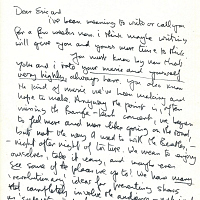 Dear Eric and
I've been meaning to write or call you
for a few weeks now. I think maybe writing
will give you and yours more time to think.
You must know by now that
Yoko and I rate your music and yourself
very highly, always have. You also know
the kind of music we've been making and
hope to make. Anyway the point is, after
missing the Bangla-Desh concert, we began
to feel more and more like going on the road,
but not the way I used to with the Beatles –
night after night of torture. We mean to enjoy
ourselves, take it easy, and maybe even
see some of the places we go to! We have many
'revolutionary' ideas for presenting shows
that completely involve the audience